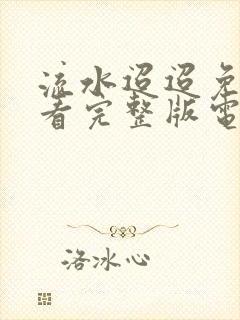 流水迢迢免
看完整版電
洛冰心